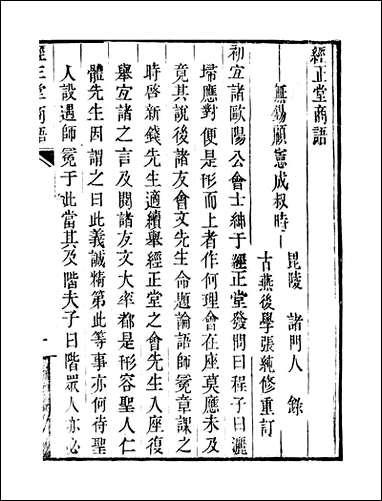 經正堂商語
無錫顧憲成叔時
毘陵 諸門人 錄
古燕後學張純修重訂
初宜諸歐陽公會士紳于經正堂發問曰程子曰灑
埽應對便是形而上者作何理會在座莫應未及
竟其說後諸友會文先生命題論語師冕章課之
時啓新錢先生適續舉經正堂之會先生入座復
舉宜諸之言及閱諸友文大率都是形容聖人仁
體先生因謂之曰此義誠精第此等事亦何待聖
人設遇師冕于此當其及階夫子曰階眾人亦必
經正堂商語
一